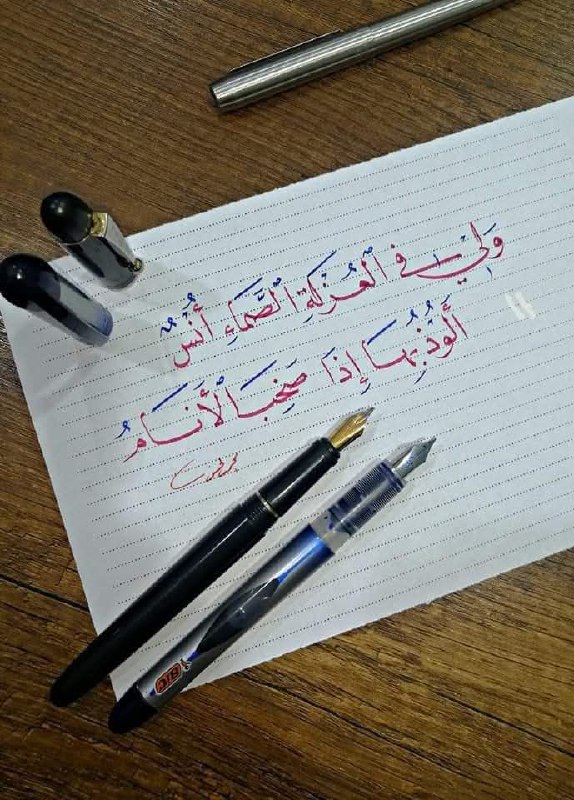 وَلِي في الْعُزْلَةِ الصَّمَّاءِ أُنْسٌ
أَلُوذُ بِهَا إِذَا صَخِبَ الْأَنَامُ
BIC